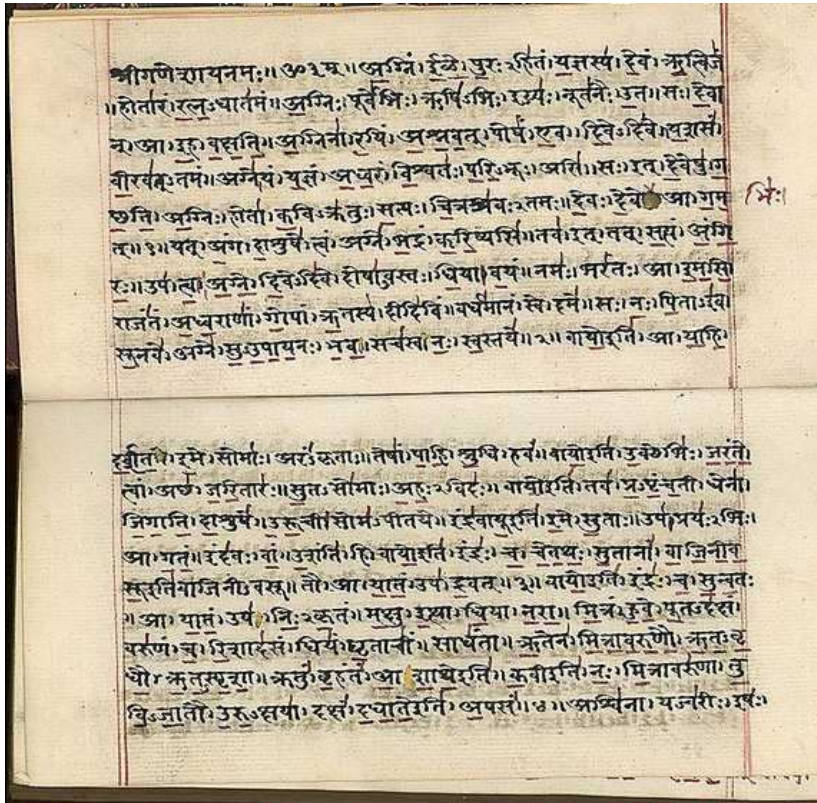 श्रीगणेशायनमः॥ ॐ३म् ॥ अग्निं। ईळे। पुरःऽहितं। यज्ञस्य। देवं। ऋत्विजं
॥ होतारं। रत्नऽधातमं॥ अग्निः। पूर्वेभिः। ऋषिऽभिः। ईड्यः। नूतनैः। उत॥ सः। देवा
न्। आ। इह। वक्षति॥ अग्निना। रयिं। अश्नवत्। पोषं। एव। दिवेऽदिवे॥ यशसं
वीरवत्ऽतमं॥ अग्ने। यं। यज्ञं। अध्वरं। विश्वतः। परिऽभूः। असि॥ सः। इत्। देवेषु। ग
च्छति। अग्निः। होता। कविऽक्रतुः। सत्यः। चित्रश्रवःऽतमः॥ देवः। देवे आ। गम
भिः।
त्॥१॥ यत्। अंग। दाशुषे। त्वं। अग्ने। भद्रं। करिष्यसि॥ तव। इत्। तत्। सत्यं। अंगि
रः॥ उप। त्वा। अग्ने। दिवेऽदिवे। दोषाऽवस्तः। धिया। वयं॥ नमः। भरंतः। आ। इमसि॥
राजंतं। अध्वराणां। गोपां। ऋतस्य। दीदिविं॥ वर्धमानं। स्वे। दमे॥ सः। नः। पिताऽइव।
सूनवे। अग्ने। सुऽउपायनः। भव॥ सचस्व। नः। स्वस्तये॥२॥ वायोइति। आ। याहि।
दर्शत। इमे। सोमाः। अरंऽकृताः॥ तेषां। पाहि। श्रुधि। हवं॥ वायोइति। उक्थेभिः। जरंते।
त्वां। अच्छ। जरितारः॥ सुतऽसोमाः। अहःऽविदः॥ वायोइति। तव। प्रऽपृंचती। धेना।
जिगाति। दाशुषे॥ उरूची। सोमऽपीतये॥ इंद्रवायूइति। इमे। सुताः॥ उप। प्रयःऽभिः।
आ। गतं॥ इंदवः। वां। उशंति। हि॥ वायोइति। इंद्रः। च। चेतथः। सुतानां। वाजिनीव
सूइतिवाजिनीऽवसू॥ तौ। आ। यातं। उप। द्रवत्॥३॥ वायोइति। इंद्रः। च। सुन्वतः
॥ आ। यातं। उप। निःऽकृतं॥ मक्षु। इत्था। धिया। नरा॥ मित्रं। हुवे। पूतऽदक्षं।
वरुणं। च। रिशादसं॥ धियं। घृताचीं। साधंता॥ ऋतेन। मित्रावरुणौ। ऋतऽवृ
धौ। ऋतऽस्पृशा॥ क्रतुं। बृहंतं। आशाथेइति॥ कवीइति। नः। मित्रावरुणा। तु
विऽजातौ। उरुऽक्षया॥ दक्षं। दधातेइति। अपसं॥४॥ अश्विना। यज्वरीः। इषः।